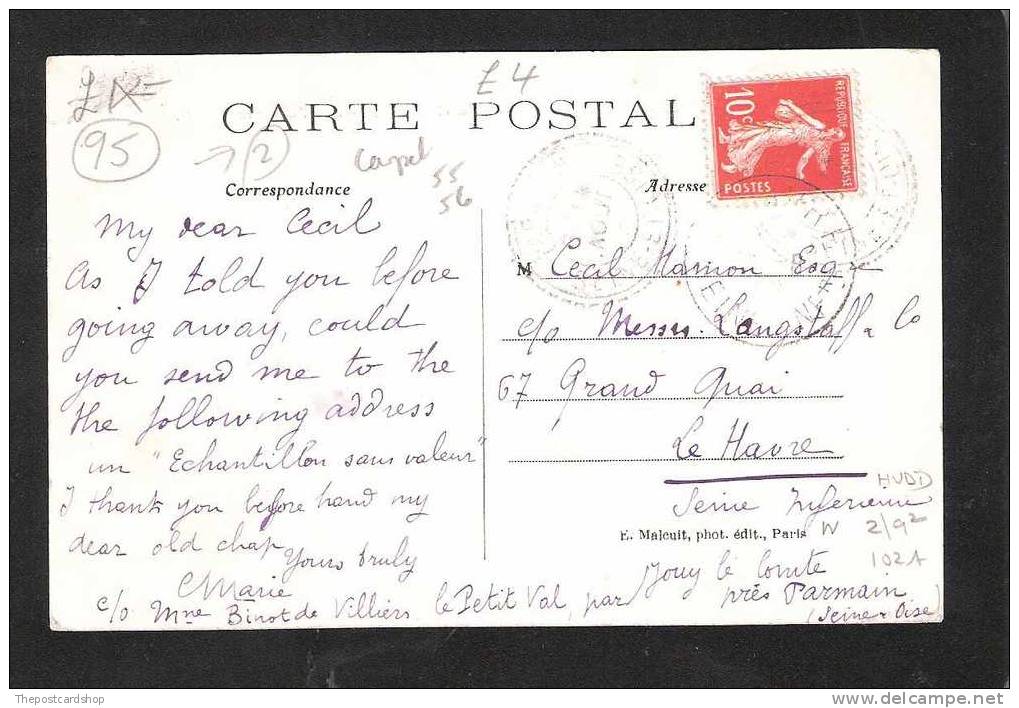 £4
CARTE POSTALE
95
2
Capel
55
56
Correspondance
Adresse
10c
REPUBLIQUE FRANÇAISE
POSTES
My dear Cecil
As I told you before
going away, could
you send me to the
the following address
un "Echantillon sans valeur"
I thank you before hand my
dear old chap
Yours truly
CMarie
c/o Mme Binot de Villiers le Petit Val, par Jouy le Comte
près Parmain
(Seine & Oise)
M Cecil Marion Esqre
c/o Messrs. Langstaff & Co
67 Grand Quai
Le Havre
Seine Inferieure
E. Malcuit, phot. édit., Paris
HUDD
W 2/92
102A
Thepostcardshop
www.delcampe.net